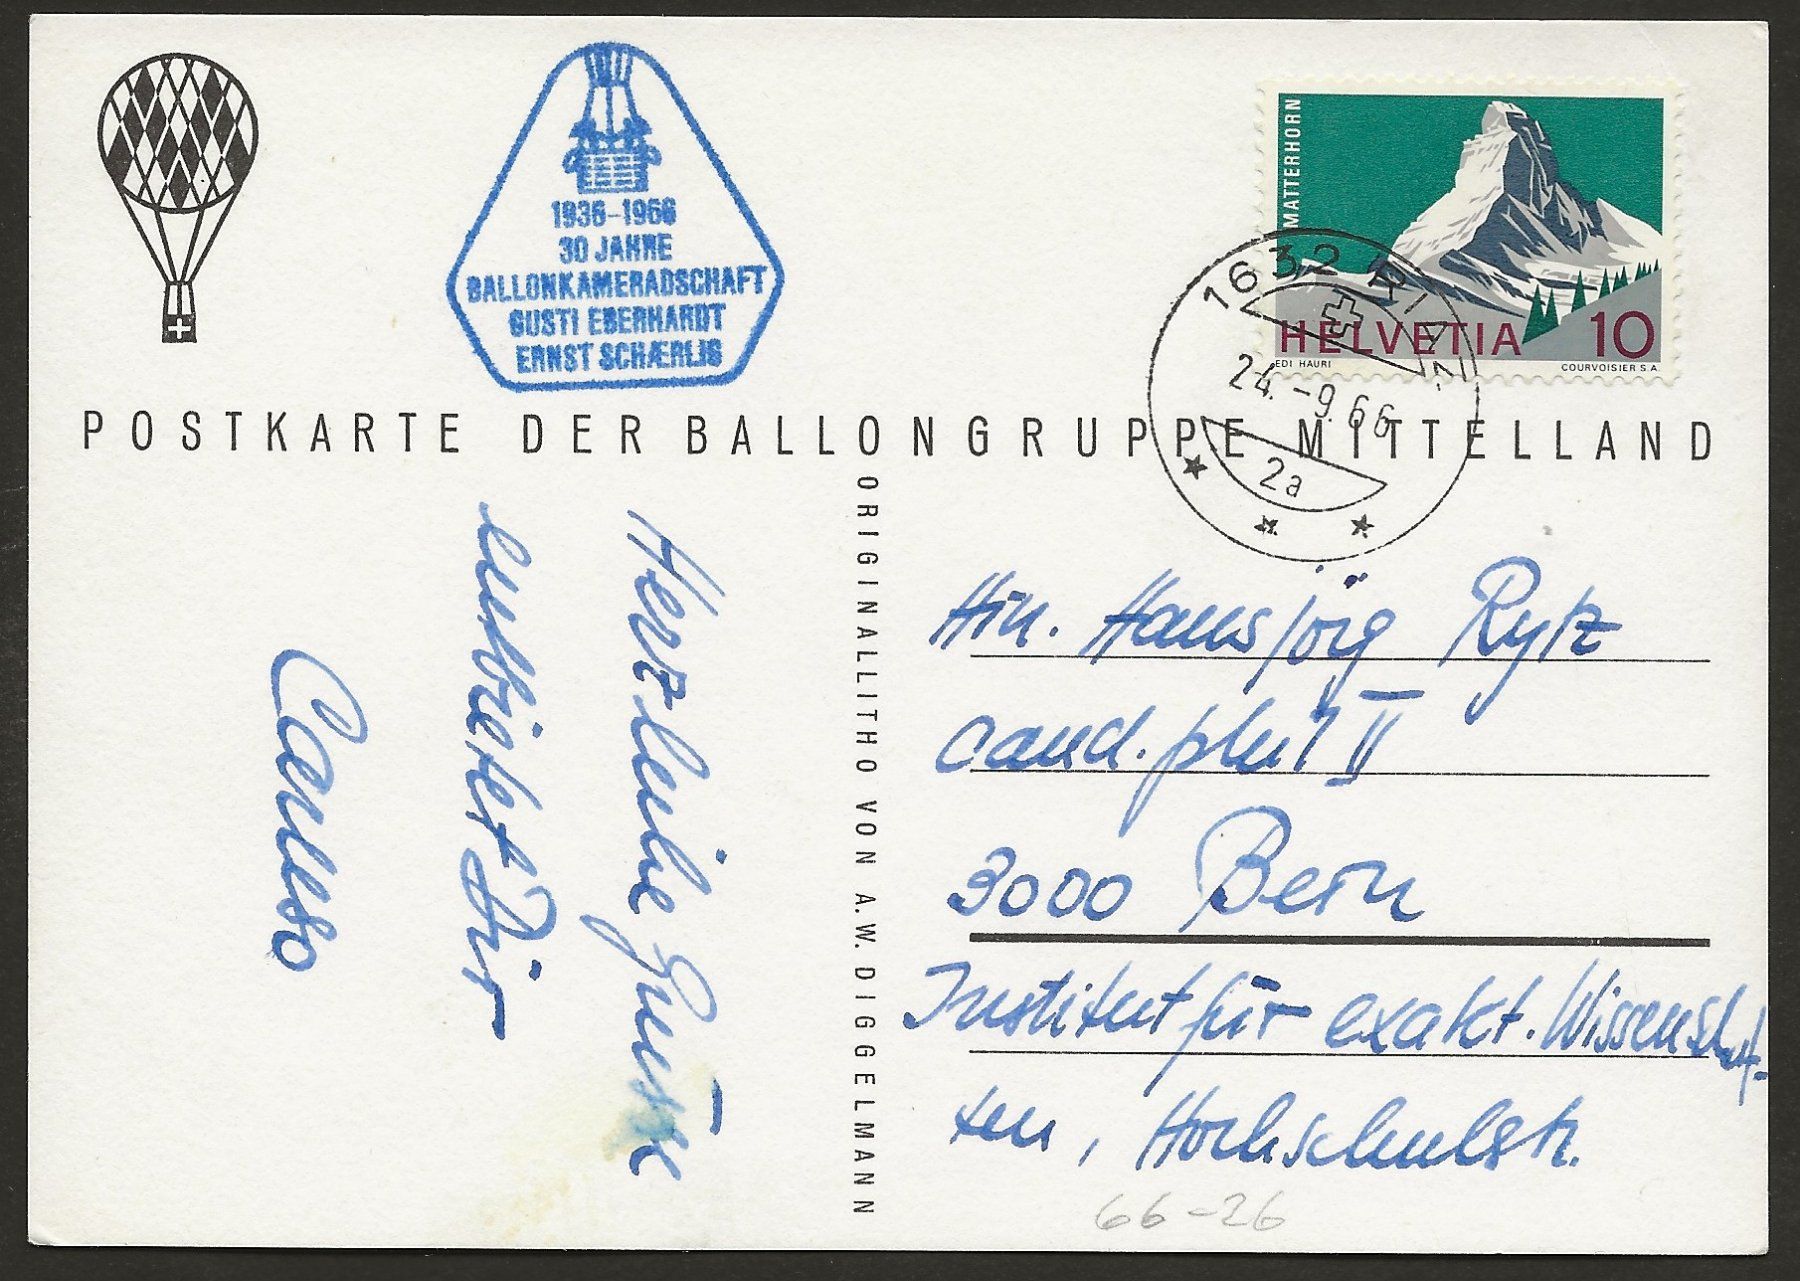 1936-1966
30 JAHRE
BALLONKAMERADSCHAFT
GUSTI EBERHARDT
ERNST SCHÆRLIG
MATTERHORN
HELVETIA 10
EDI HAURI
COURVOISIER S.A.
1632 RIAZ
24.-9.66
2a
POSTKARTE DER BALLONGRUPPE MITTELLAND
ORIGINALLITHO VON A.W. DIGGELMANN
Herzliche Grüsse
entbietet Dir
Caruso
Hrn. Hansjörg Rytz
cand. phil II
3000 Bern
Institut für exakt. Wissenschaf-
ten, Hochschulstr.
66-26